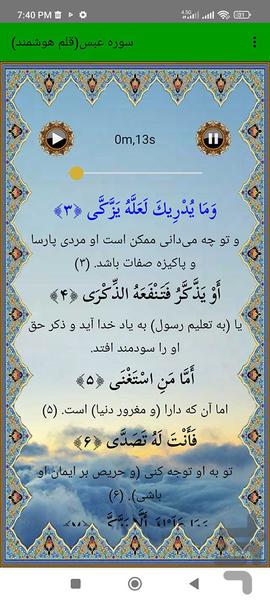 7:40 PM
سوره عبس(قلم هوشمند)
0m,13s
وَمَا يُدْرِيكَ لَعَلَّهُ يَزَّكَّى ﴿۳﴾
و تو چه می‌دانی ممکن است او مردی پارسا
و پاکیزه صفات باشد. (۳)
أَوْ يَذَّكَّرُ فَتَنْفَعَهُ الذِّكْرَى ﴿۴﴾
یا (به تعلیم رسول) به یاد خدا آید و ذکر حق
او را سودمند افتد.
أَمَّا مَنِ اسْتَغْنَى ﴿۵﴾
اما آن که دارا (و مغرور دنیا) است. (۵)
فَأَنْتَ لَهُ تَصَدَّى ﴿۶﴾
تو به او توجه کنی (و حریص بر ایمان او
باشی). (۶)